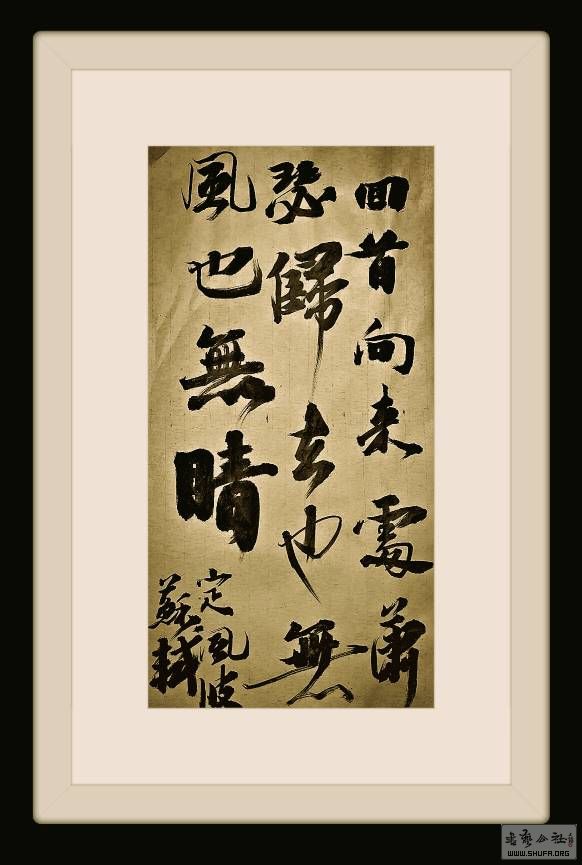 回首向来處蕭
瑟歸去也無
風也無晴
定風波
蘇軾
书艺公社
WWW.SHUFA.ORG